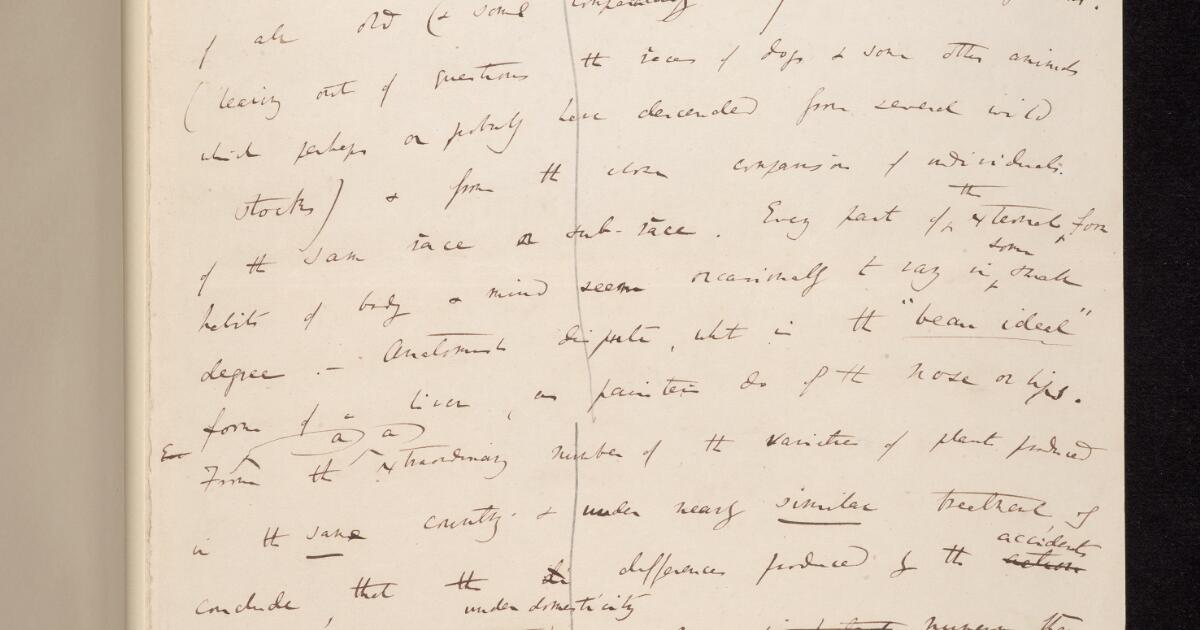 of all old (& some
(leaving out of questions the races of dogs & some other animals
which perhaps or probably have descended from several wild
stocks) & from the close comparison of individuals.
of the same race or sub-race. Every part of the external form
some
habits of body & mind seem occasionally to vary in small
degree. — Anatomists dispute, what is the "beau ideal"
form of a liver, as painters do of the nose or lips.
a a
From the extraordinary number of the varieties of plant produced
in the same country & under nearly similar treatment
accidents
conclude, that the differences produced by the action
under domesticity